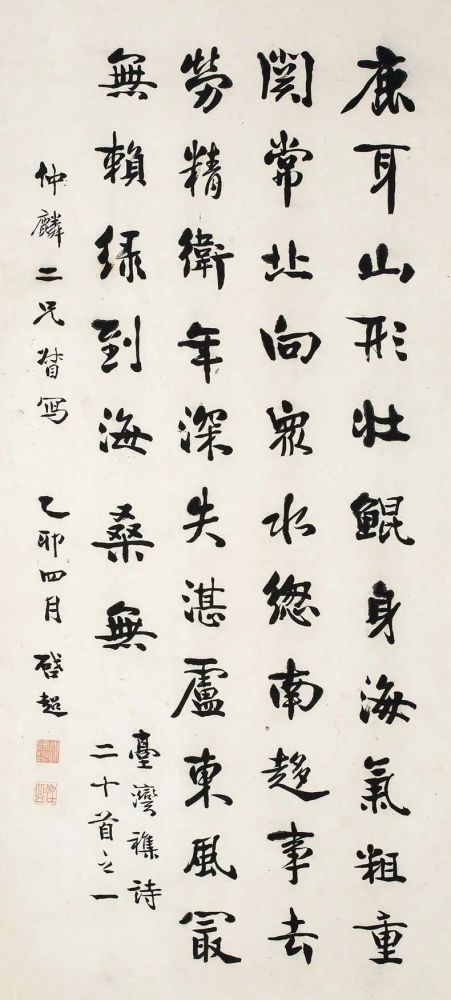 鹿耳山形壮鲲身海氣粗重
関常北向眾水總南趨事去
勞精衛年深失湛盧東風㝡
無賴绿到海桑無
臺灣襍詩
二十首之一
仲麟二兄督写
乙卯四月啓超